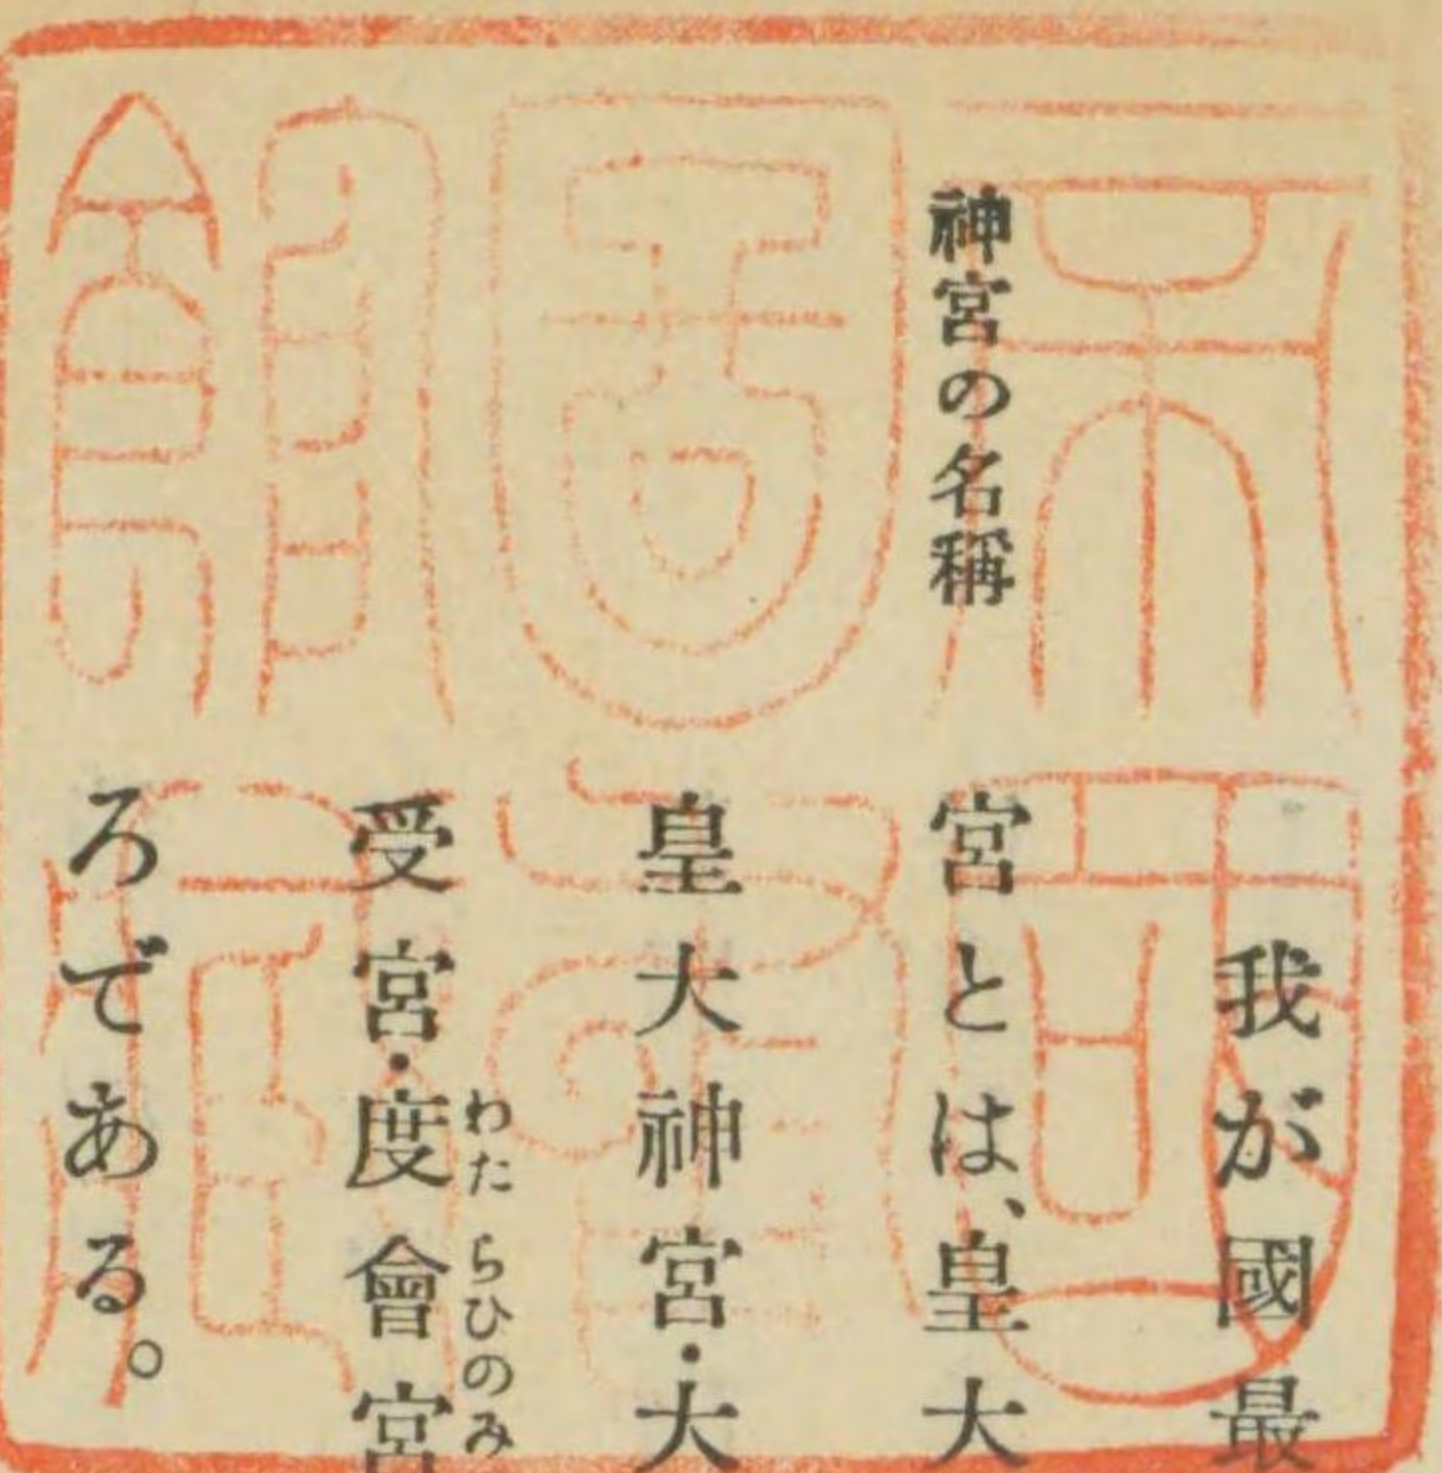 神宮の名稱
我が國最
宮とは、皇大
皇大神宮・大
受宮・度會宮
わたらひのみ
ろである。